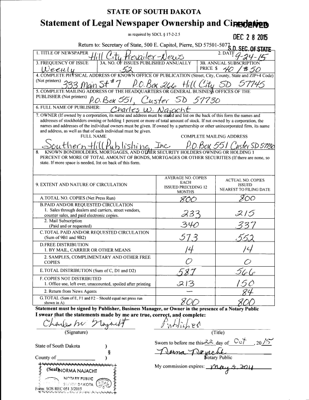 STATE OF SOUTH DAKOTA
Statement of Legal Newspaper Ownership and Circulation
RECEIVED
as required by SDCL § 17-2-2.3
DEC 28 2015
Return to: Secretary of State, 500 E. Capitol, Pierre, SD 57501-5077
S.D. SEC. OF STATE
1. TITLE OF NEWSPAPER Hill City Prevailer-News 2. DATE 9-24-15
3. FREQUENCY OF ISSUE Weekly 3A. NO. OF ISSUES PUBLISHED ANNUALLY 52 3B. ANNUAL SUBSCRIPTION PRICE $ 40/$50
4. COMPLETE PHYSICAL ADDRESS OF KNOWN OFFICE OF PUBLICATION (Street, City, County, State and ZIP+4 Code)
(Not printers) 333 Main St #7 P.O. Box 266 Hill City SD 57745
5. COMPLETE MAILING ADDRESS OF THE HEADQUARTERS OR GENERAL BUSINESS OFFICES OF THE
PUBLISHER (Not printers) P.O. Box 551, Custer SD 57730
6. FULL NAME OF PUBLISHER: Charles W. Najacht
7. OWNER (If owned by a corporation, its name and address must be stated and list on the back of this form the names and
addresses of stockholders owning or holding 5 percent or more of total amount of stock. If not owned by a corporation, the
names and addresses of the individual owners must be given. If owned by a partnership or other unincorporated firm, its name
and address, as well as that of each individual must be given).
FULL NAME COMPLETE MAILING ADDRESS
Southern Hills Publishing, Inc P.O Box 551 Custer SD 57730
8. KNOWN BONDHOLDERS, MORTGAGEES, AND OTHER SECURITY HOLDERS OWNING OR HOLDING 5
PERCENT OR MORE OF TOTAL AMOUNT OF BONDS, MORTGAGES OR OTHER SECURITIES (If there are none, so
state. If more space is needed, list on back of this form).
9. EXTENT AND NATURE OF CIRCULATION
AVERAGE NO. COPIES EACH ISSUED PRECEDING 12 MONTHS
ACTUAL NO. COPIES ISSUED NEAREST TO FILING DATE
A. TOTAL NO. COPIES (Net Press Run) 800 800
B. PAID AND/OR REQUESTED CIRCULATION
1. Sales through dealers and carriers, street vendors,
counter sales, and paid electronic copies. 233 215
2. Mail Subscription
(Paid and/or requested) 340 337
C. TOTAL PAID AND/OR REQUESTED CIRCULATION
(Sum of 9B1 and 9B2) 573 552
D. FREE DISTRIBUTION
1. BY MAIL, CARRIER OR OTHER MEANS 14 14
2. SAMPLES, COMPLIMENTARY AND OTHER FREE
COPIES 0 0
E. TOTAL DISTRIBUTION (Sum of C, D1 and D2) 587 566
F. COPIES NOT DISTRIBUTED
1. Office use, left over, unaccounted, spoiled after printing 213 150
2. Return from News Agents — 84
G. TOTAL (Sum of E, F1 and F2 - Should equal net press run
shown in A) 800 800
Statement must be signed by Publisher, Business Manager, or Owner in the presence of a Notary Public
I swear that the statements made by me are true, correct, and complete:
Charles W. Najacht Publisher
(Signature) (Title)
State of South Dakota )
§
County of )
Sworn to before me this day of Oct, 2015
Norma Najacht
Notary Public
(Seal) NORMA NAJACHT
NOTARY PUBLIC
SOUTH DAKOTA
My commission expires: